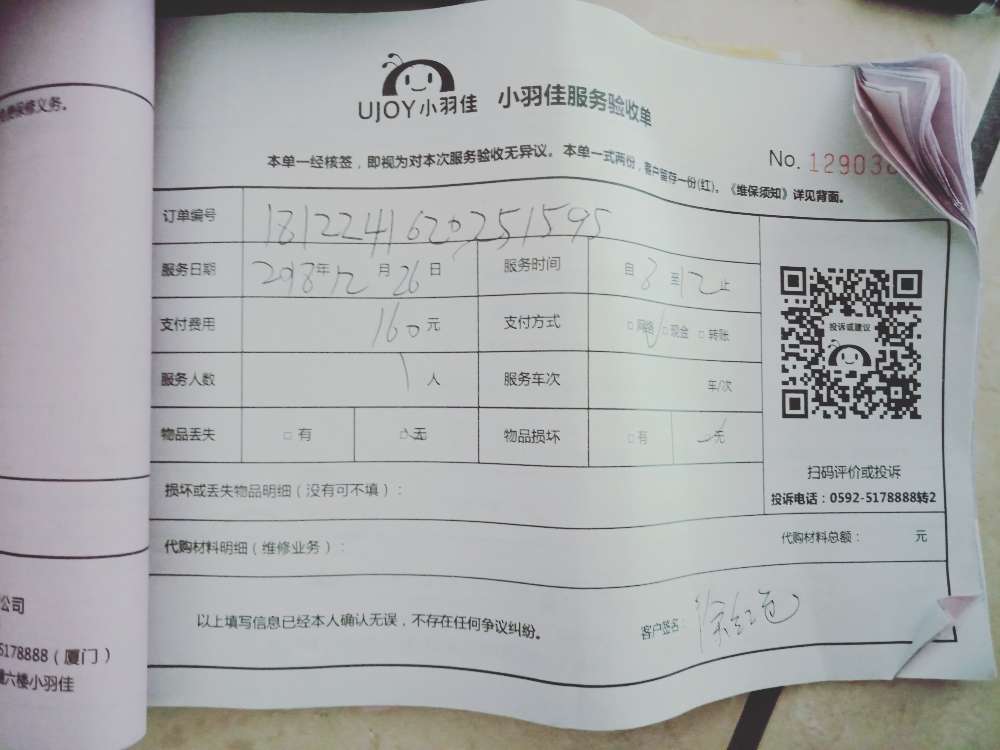 免费保修义务。
UJOY小羽佳 小羽佳服务验收单
本单一经核签，即视为对本次服务验收无异议。本单一式两份，客户留存一份(红)。《维保须知》详见背面。
No. 12903
订单编号 1812241620251595
服务日期 2018年12月26日 服务时间 自8至12止
支付费用 160元 支付方式 □网络 □现金 □转账
服务人数 1人 服务车次 车/次
物品丢失 □有 □无 物品损坏 □有 无
投诉或建议
扫码评价或投诉
投诉电话：0592-5178888转2
损坏或丢失物品明细（没有可不填）：
代购材料明细（维修业务）： 代购材料总额： 元
以上填写信息已经本人确认无误，不存在任何争议纠纷。
客户签名：
公司
5178888（厦门）
六楼小羽佳